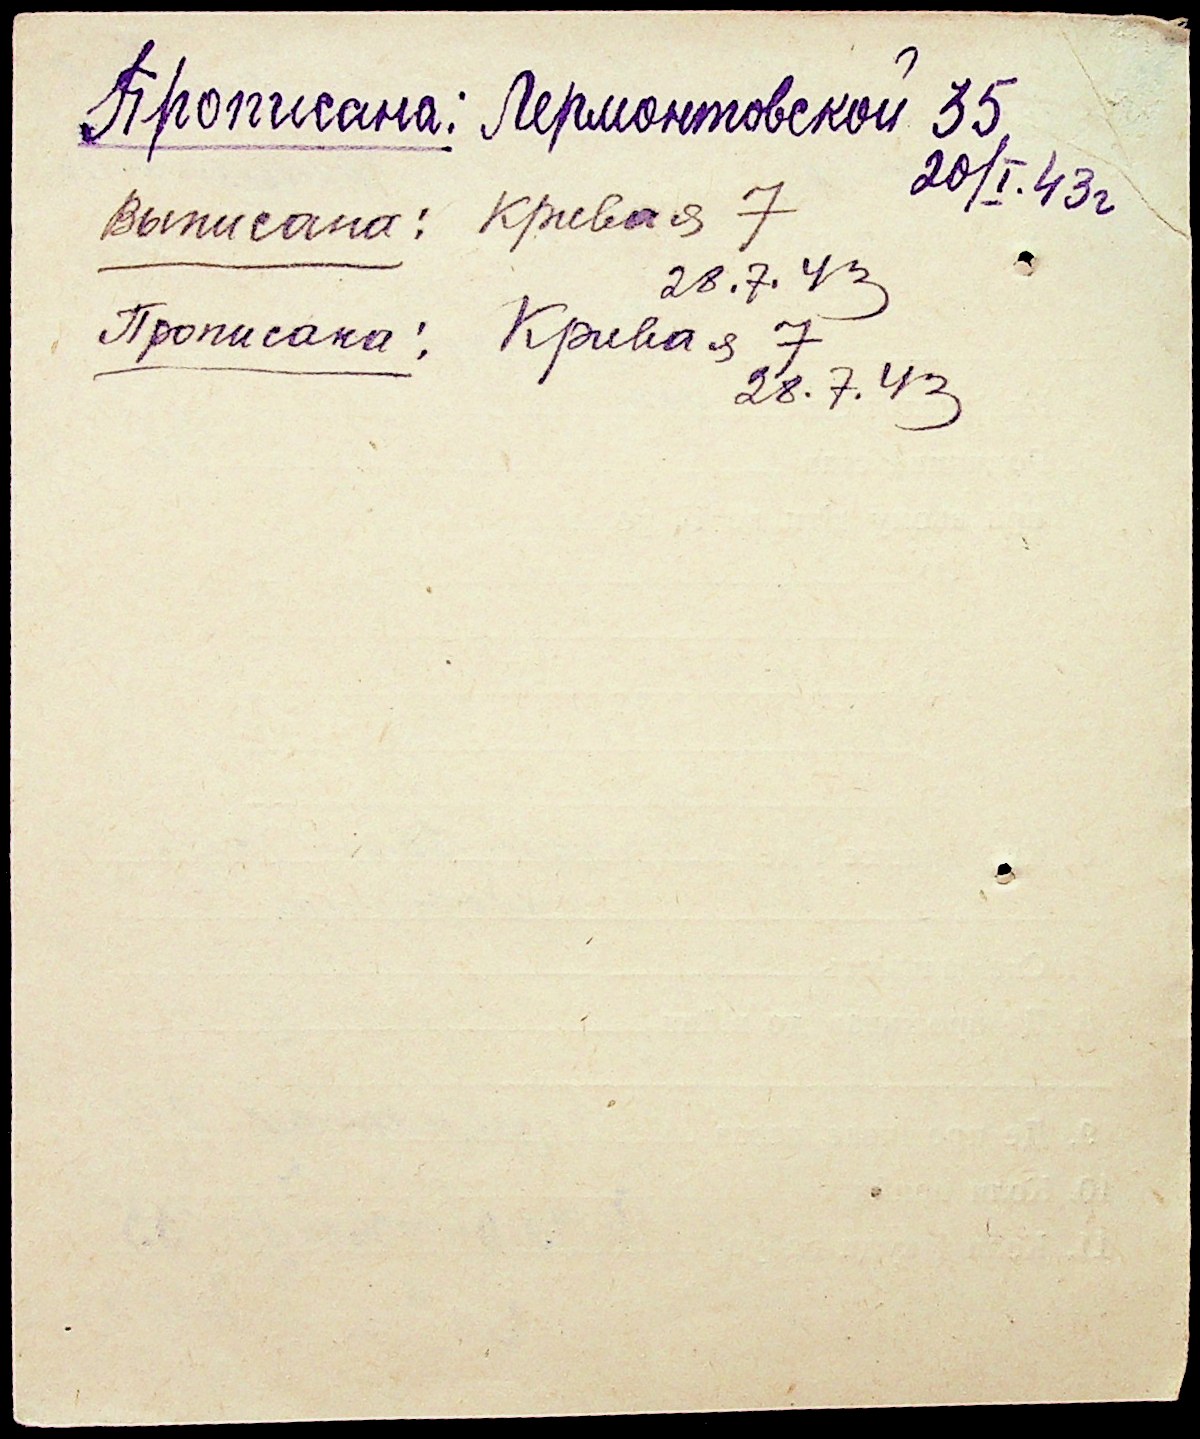 Прописана: Лермонтовской 35
20/I.43г
Выписана: Кривая 7
28.7.43
Прописана: Кривая 7
28.7.43
9.
10.
11.